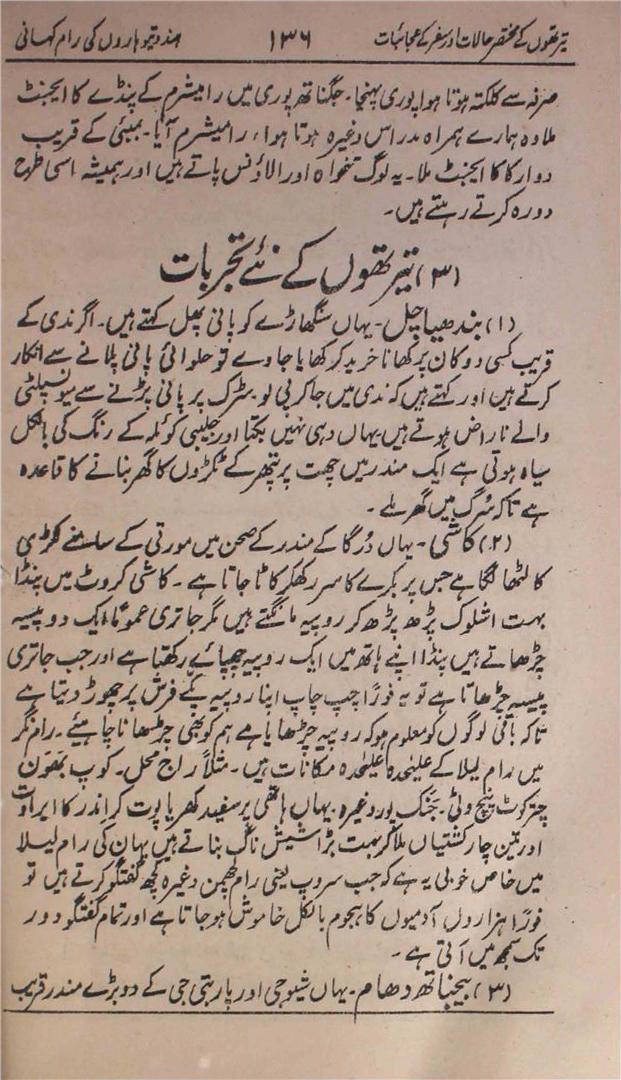 تیرتھوں کے مختصر حالات اور سفر کے عجائبات ۱۳۶ ہندو تیوہاروں کی رام کہانی
صرفہ سے کلکتہ ہوتا ہوا پوری پہنچا۔ جگناتھ پوری میں رامیشرم کے پنڈے کا ایجنٹ
ملا وہ ہمارے ہمراہ مدراس وغیرہ ہوتا ہوا، رامیشرم آیا۔ بمبئی کے قریب
دوارکا کا ایجنٹ ملا۔ یہ لوگ تنخواہ اور الاؤنس پاتے ہیں اور ہمیشہ اسی طرح
دورہ کرتے رہتے ہیں۔
(۳) تیرتھوں کے نئے تجربات
(۱) بندھیاچل۔ یہاں سنگھاڑے کو پانی پھل کہتے ہیں۔ اگر ندی کے
قریب کسی دوکان پر کھانا خرید کر کھایا جاوے تو حلوائی پانی پلانے سے انکار
کرتے ہیں اور کہتے ہیں کہ ندی میں جا کر پی لو۔ سڑک پر پانی پڑنے سے میونسپلٹی
والے ناراض ہوتے ہیں یہاں دہی نہیں بکتا اور جلیبی کوئلہ کے رنگ کی بالکل
سیاہ ہوتی ہے ایک مندر میں چھت پر پتھر کے ٹکڑوں کا گھر بنانے کا قاعدہ
ہے تاکہ سُرگ میں گھر ملے۔
(۲) کاشی۔ یہاں دُرگا کے مندر کے صحن میں مورتی کے سامنے لکڑی
کا لٹھا لگا ہے جس پر بکرے کا سر رکھکر کاٹا جاتا ہے۔ کاشی کروٹ میں پنڈا
بہت اشلوک پڑھ پڑھ کر روپیہ مانگتے ہیں مگر جاتری عموماً ایک دو پیسہ
چڑھاتے ہیں پنڈا اپنے ہاتھ میں ایک روپیہ چھپائے رکھتا ہے اور جب جاتری
پیسہ چڑھاتا ہے تو یہ فوراً چپ چاپ اپنا روپیہ پکّے فرش پر چھوڑ دیتا ہے
تاکہ باقی لوگوں کو معلوم ہو کہ روپیہ چڑھایا ہے ہم کو بھی چڑھانا چاہیئے۔ رام نگر
میں رام لیلا کے علیٰحدہ علیٰحدہ مکانات ہیں۔ مثلاً راج محل۔ کوپ بھَوَن
چترکوٹ پنچ وٹی۔ جنک پور وغیرہ۔ یہاں ہاتھی پر سفید کھریا پوت کر اِندر کا ایراوت
اور تین چار کشتیاں ملا کر بہت بڑا شیش ناگ بناتے ہیں یہاں کی رام لیلا
میں خاص خوبی یہ ہے کہ جب سروپ یعنی رام لچھمن وغیرہ کچھ گفتگو کرتے ہیں تو
فوراً ہزاروں آدمیوں کا ہجوم بالکل خاموش ہو جاتا ہے اور تمام گفتگو دور
تک سمجھ میں آتی ہے۔
(۳) بیجناتھ دھام۔ یہاں شیوجی اور پاربتی جی کے دو بڑے مندر قریب